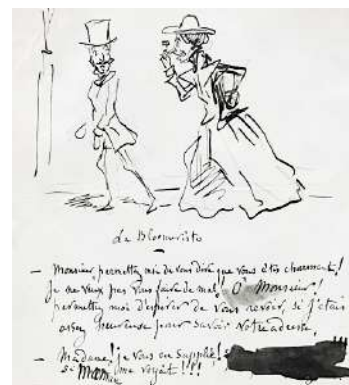 La Bloomériste
— Monsieur, permettez moi de vous dire que vous êtes charmant!
Je ne veux pas vous faire de mal! O Monsieur!
permettez moi d'espérer de vous revoir, si j'étais
assez heureuse pour savoir votre adresse,
— Madame! je vous en supplie!
si Maman me voyait!!!